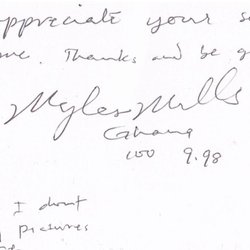 appreciate your s
me. Thanks and be g
Myles Mills
Ghana
100 9.98
I dont
pictures